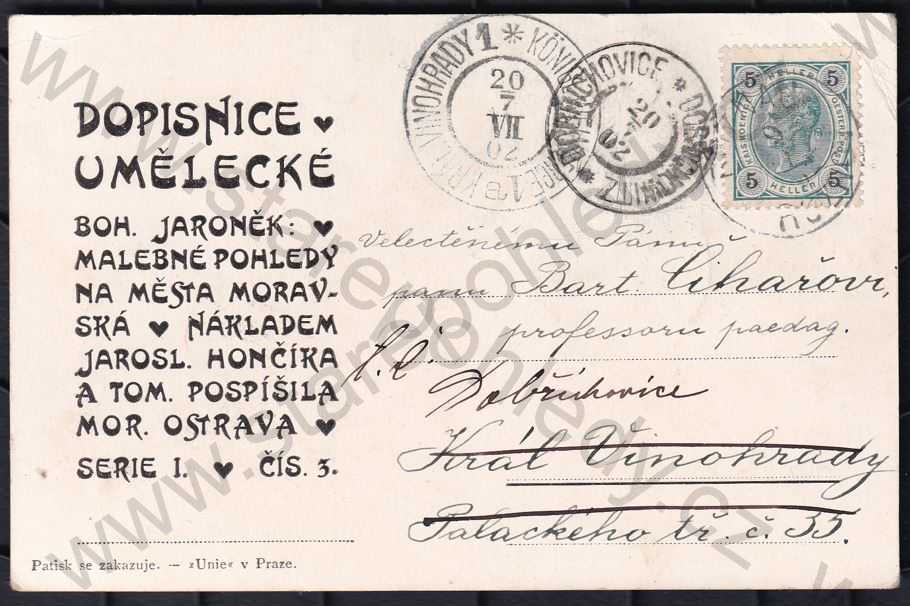 DOPISNICE ♥
UMĚLECKÉ
BOH. JARONĚK: ♥
MALEBNÉ POHLEDY
NA MĚSTA MORAV-
SKÁ ♥ NÁKLADEM
JAROSL. HONČÍKA
A TOM. POSPÍŠILA
MOR. OSTRAVA ♥
SERIE I. ♥ ČÍS. 3.
Patisk se zakazuje. — »Unie« v Praze.
VINOHRADY 1 *
20
7
VII
02
DOBŘICHOVICE *
20
7
02
5 5
HELLER
5 5
HELLER
Velectěnému Pánu
panu Bart. Cihařovi,
professoru paedag.
t. č.
Dobřichovice
Král Vinohrady
Palackého tř. č. 35.
www.starepohledy.cz
www.starepohledy.cz